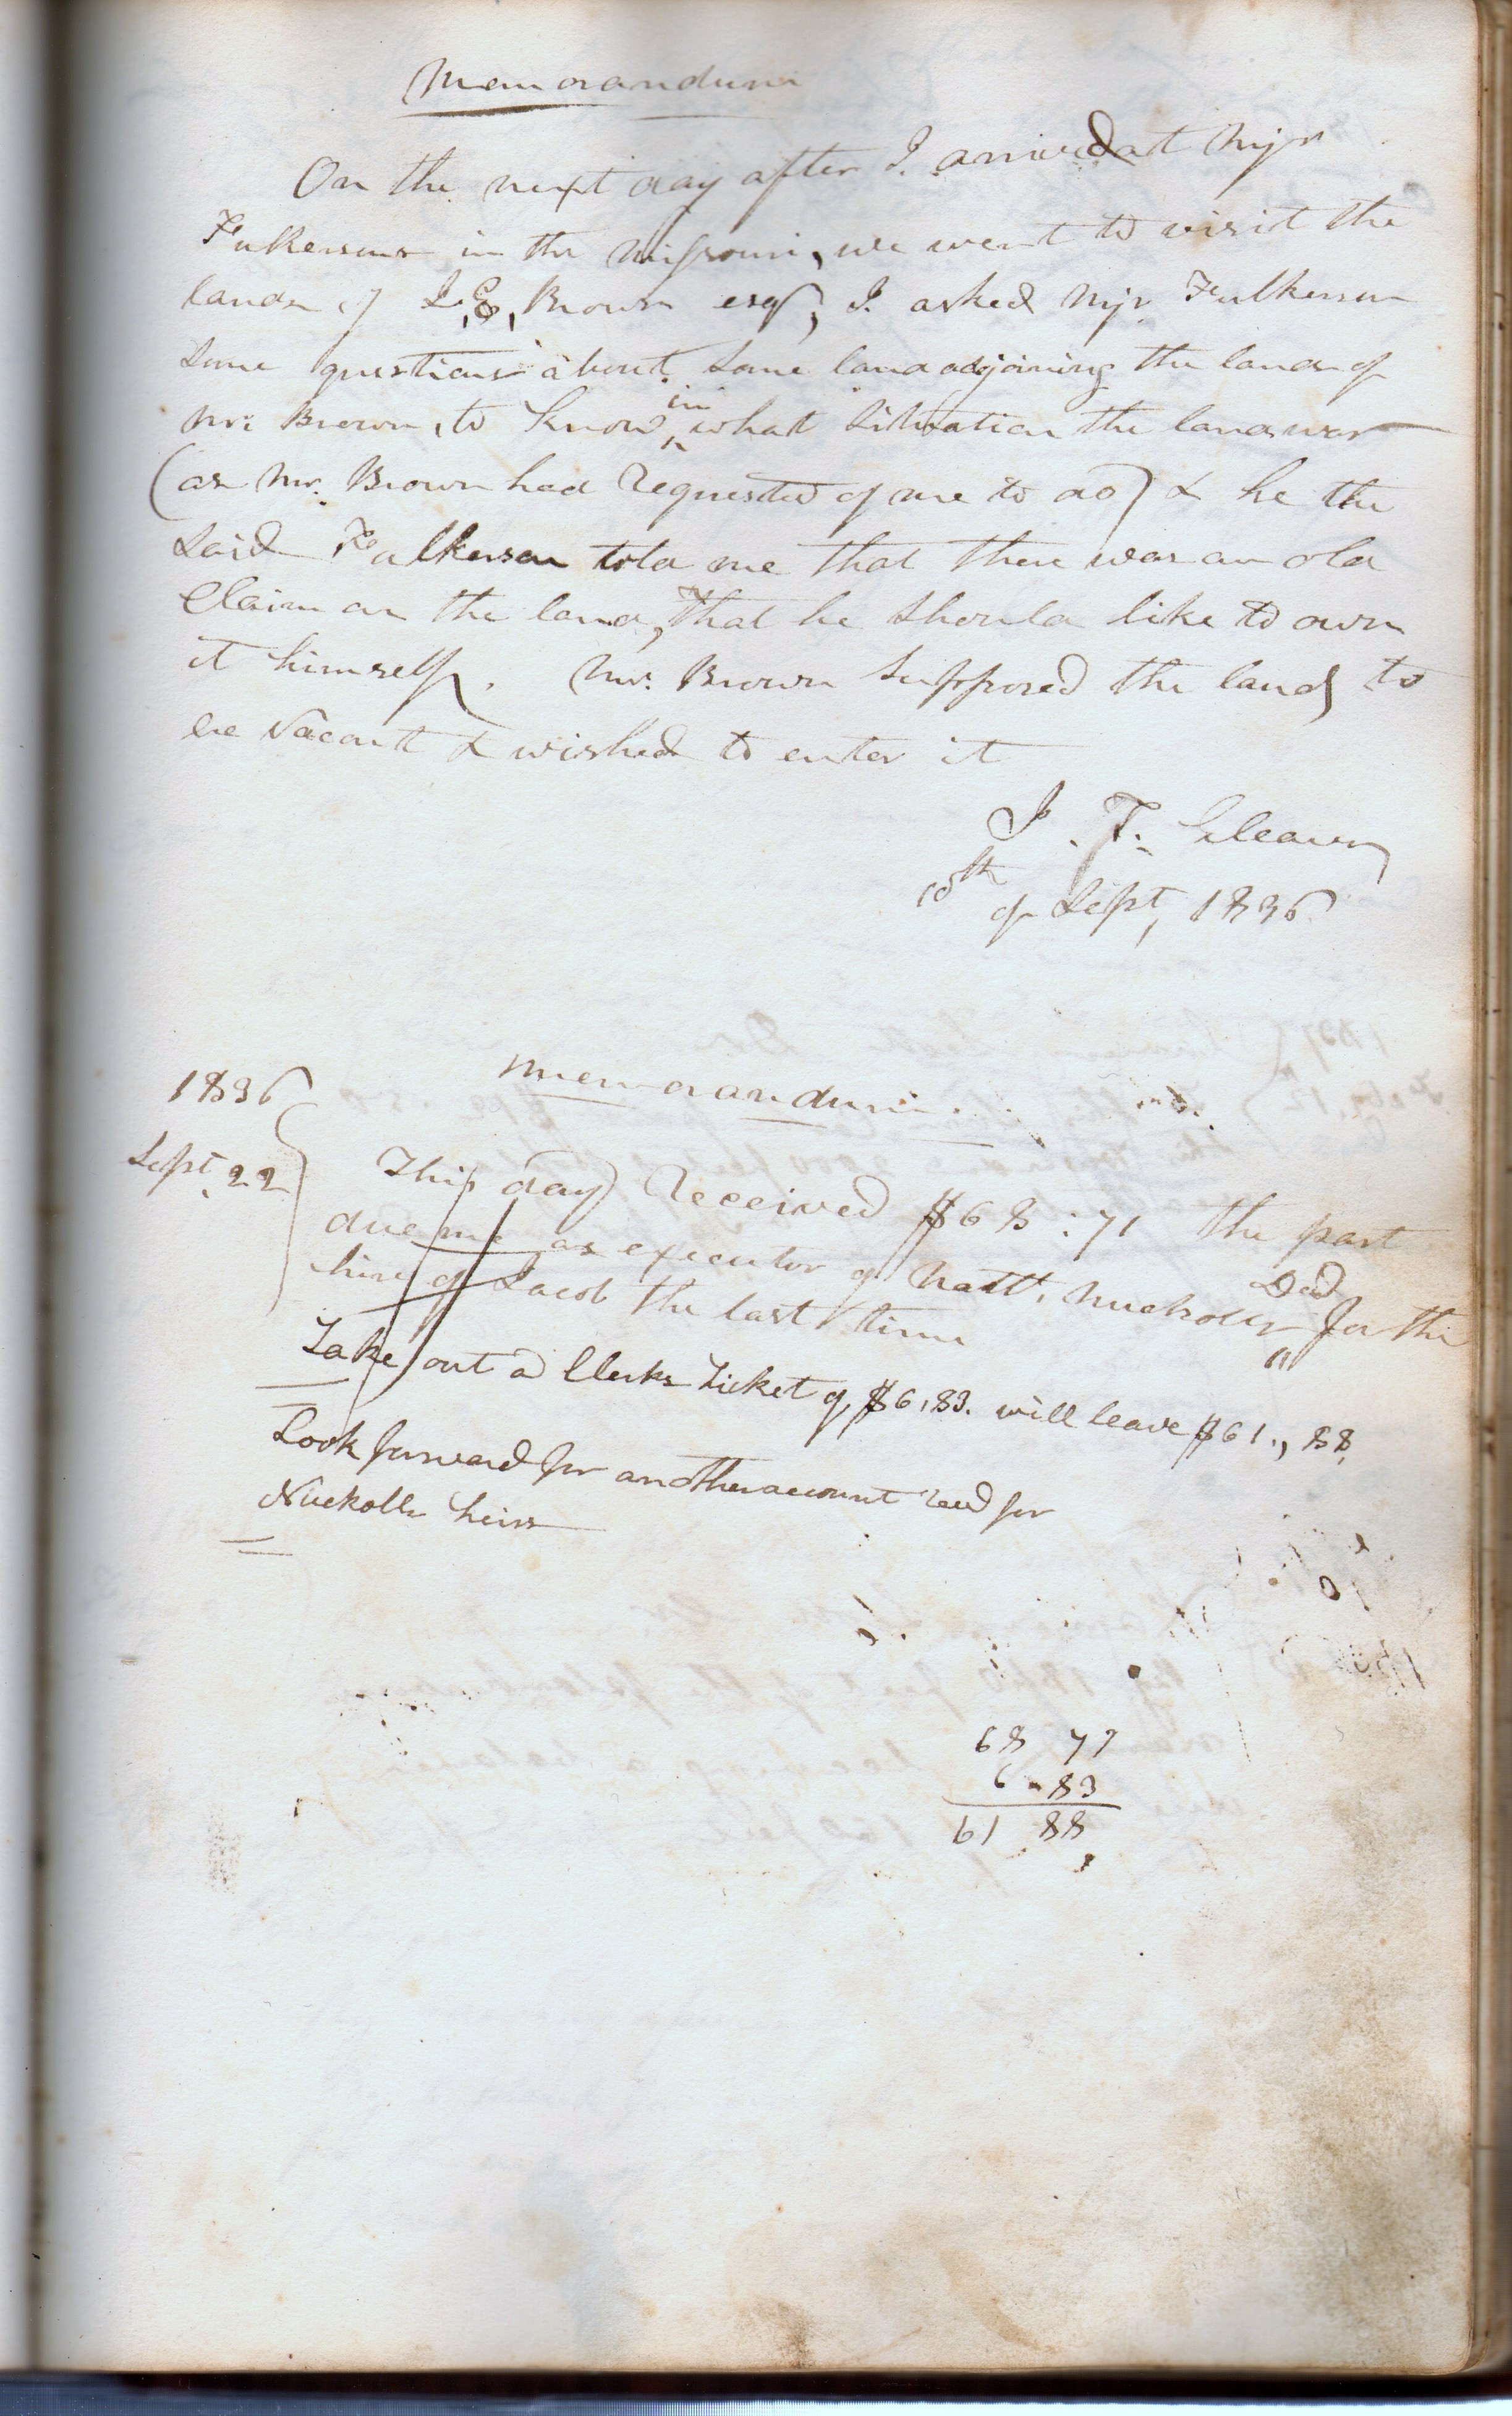 Memorandum
On the next day after I. arrived at Mjr
Fulkersons in the Missouri, we went to visit the
lands of I, E, Brown esqr, I. asked Mjr Fulkerson
some questions about some land adjoining the lands of
Mr. Brown, to know in what situation the lands was
(as Mr. Brown had requested of me to do) & he the
said Fulkerson told me that there was an old
Claim on the land, That he should like to own
it himself. Mr. Brown supposed the lands to
be vacant & wished to enter it
J. T. Gleaves
10th of Sept, 1836
Memorandum
1836
Sept. 22
This day Received $68:71 the part
due me as executor of Natt. Nuckolls Decd for the
hire of Jacob the last time
Take out a Clerks Ticket of $6,83. will leave $61., 88,
Look forward for another account recd for
Nuckolls heirs
68 71
6.83
61 88